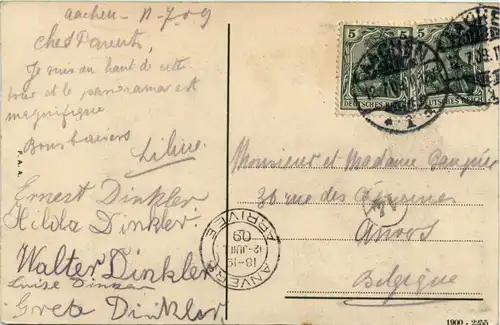 Aachen 11-7-09
Chers Parents,
Je suis au haut de cette
tour et le panorama est
magnifique
Bons baisers
Liline
Ernest Dinkler
Hilda Dinkler
Walter Dinkler
Luise Dinkler
Greta Dinkler
F. A. A.
5 5
DEUTSCHES REICH
AACHEN
12.7.09
* 1
Monsieur et Madame
30 rue des
Anvers
Belgique
ANVERS
18-19
12-JUIL
09
ARRIVEE
1900 - 2255